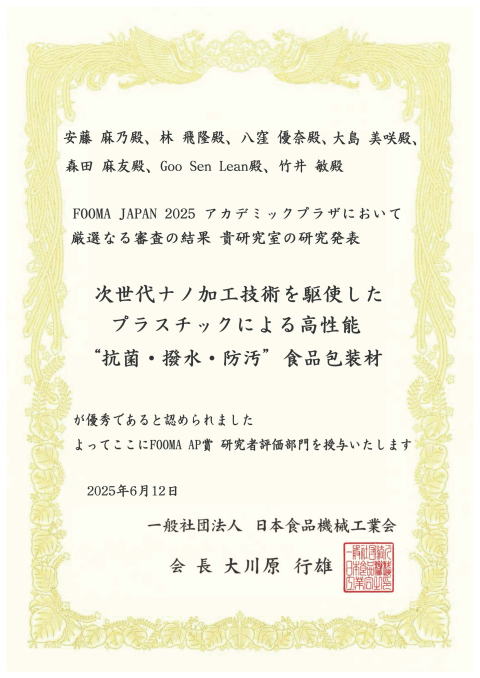 安藤 麻乃殿、林 飛隆殿、八窪 優奈殿、大島 美咲殿、
森田 麻友殿、Goo Sen Lean殿、竹井 敏殿
FOOMA JAPAN 2025 アカデミックプラザにおいて
厳選なる審査の結果 貴研究室の研究発表
次世代ナノ加工技術を駆使した
プラスチックによる高性能
“抗菌・撥水・防汚”食品包装材
が優秀であると認められました
よってここにFOOMA AP賞 研究者評価部門を授与いたします
2025年6月12日
一般社団法人 日本食品機械工業会
会長 大川原 行雄